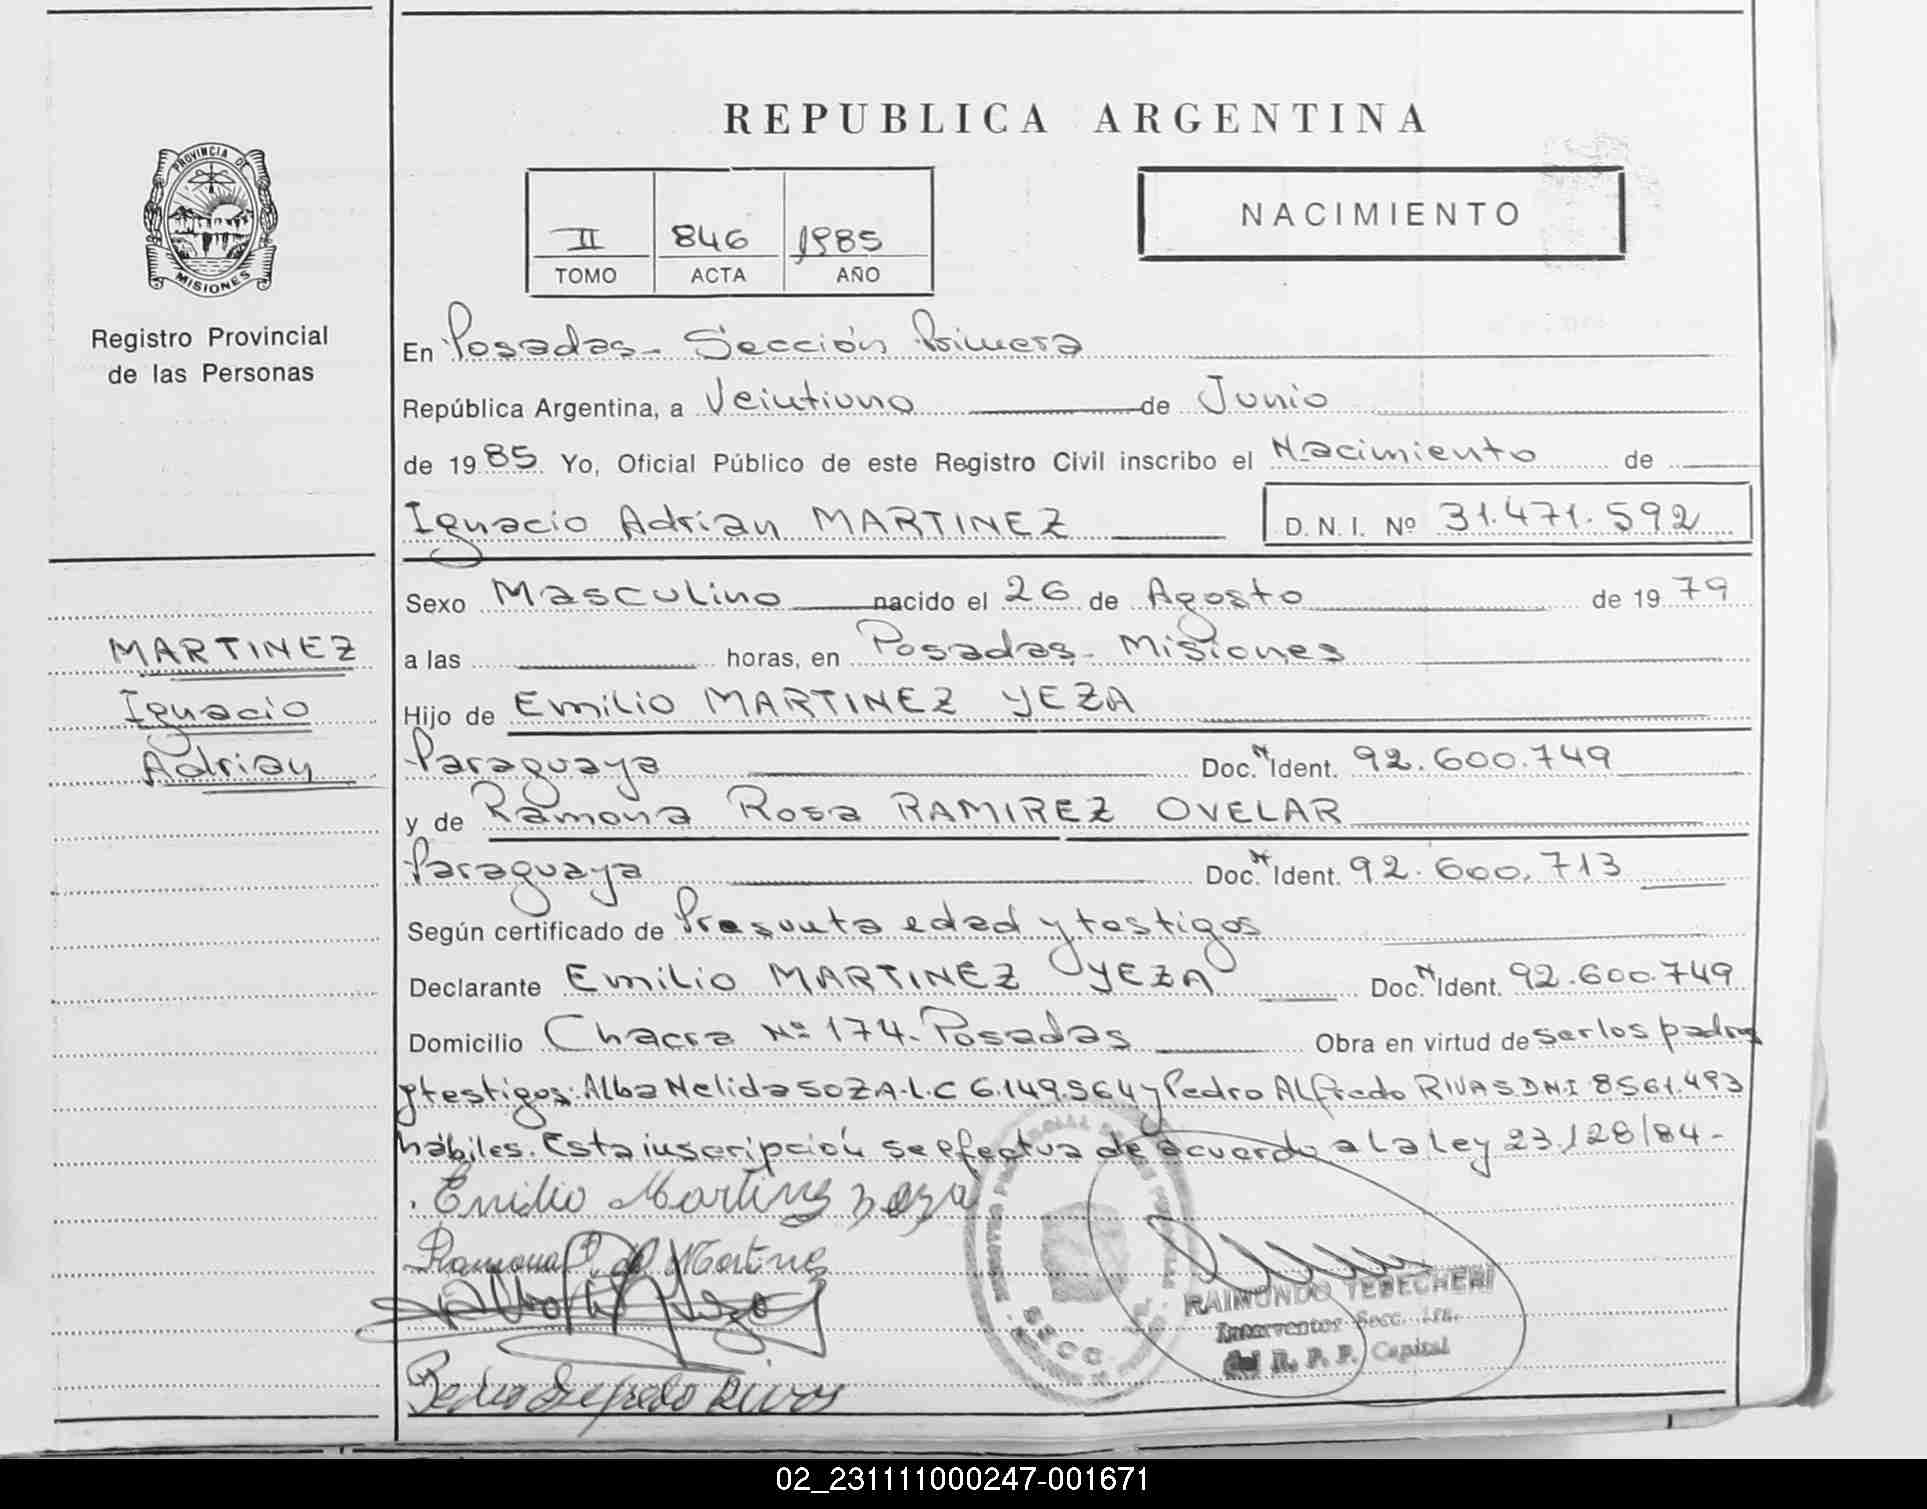 REPUBLICA ARGENTINA
PROVINCIA DE
MISIONES
Registro Provincial
de las Personas
II 846 1985
TOMO ACTA AÑO
NACIMIENTO
En Posadas - Sección Primera
República Argentina, a Veintiuno de Junio
de 1985 Yo, Oficial Público de este Registro Civil inscribo el Nacimiento de
Ignacio Adrian MARTINEZ D.N.I. Nº 31.471.592
MARTINEZ
Ignacio
Adrian
Sexo Masculino nacido el 26 de Agosto de 1979
a las horas, en Posadas - Misiones
Hijo de Emilio MARTINEZ YEZA
Paraguaya Doc. N Ident. 92.600.749
y de Ramona Rosa RAMIREZ OVELAR
Paraguaya Doc. N Ident. 92.600.713
Según certificado de Presunta edad y testigos
Declarante Emilio MARTINEZ YEZA Doc. N Ident. 92.600.749
Domicilio Chacra Nº 174 - Posadas Obra en virtud de ser los padres
y testigos: Alba Nelida SOZA - L.C 6.149.564 y Pedro Alfredo RIVAS DNI 8561.493
hábiles. Esta inscripción se efectua de acuerdo a la Ley 23.128/84 -
Emilio Martinez Yeza
Ramona R. de Martinez
Pedro Alfredo Rivas
SECC.
RAIMUNDO TEBECHERI
Interventor Secc. 1ra.
del R. P. P. Capital
02_231111000247-001671